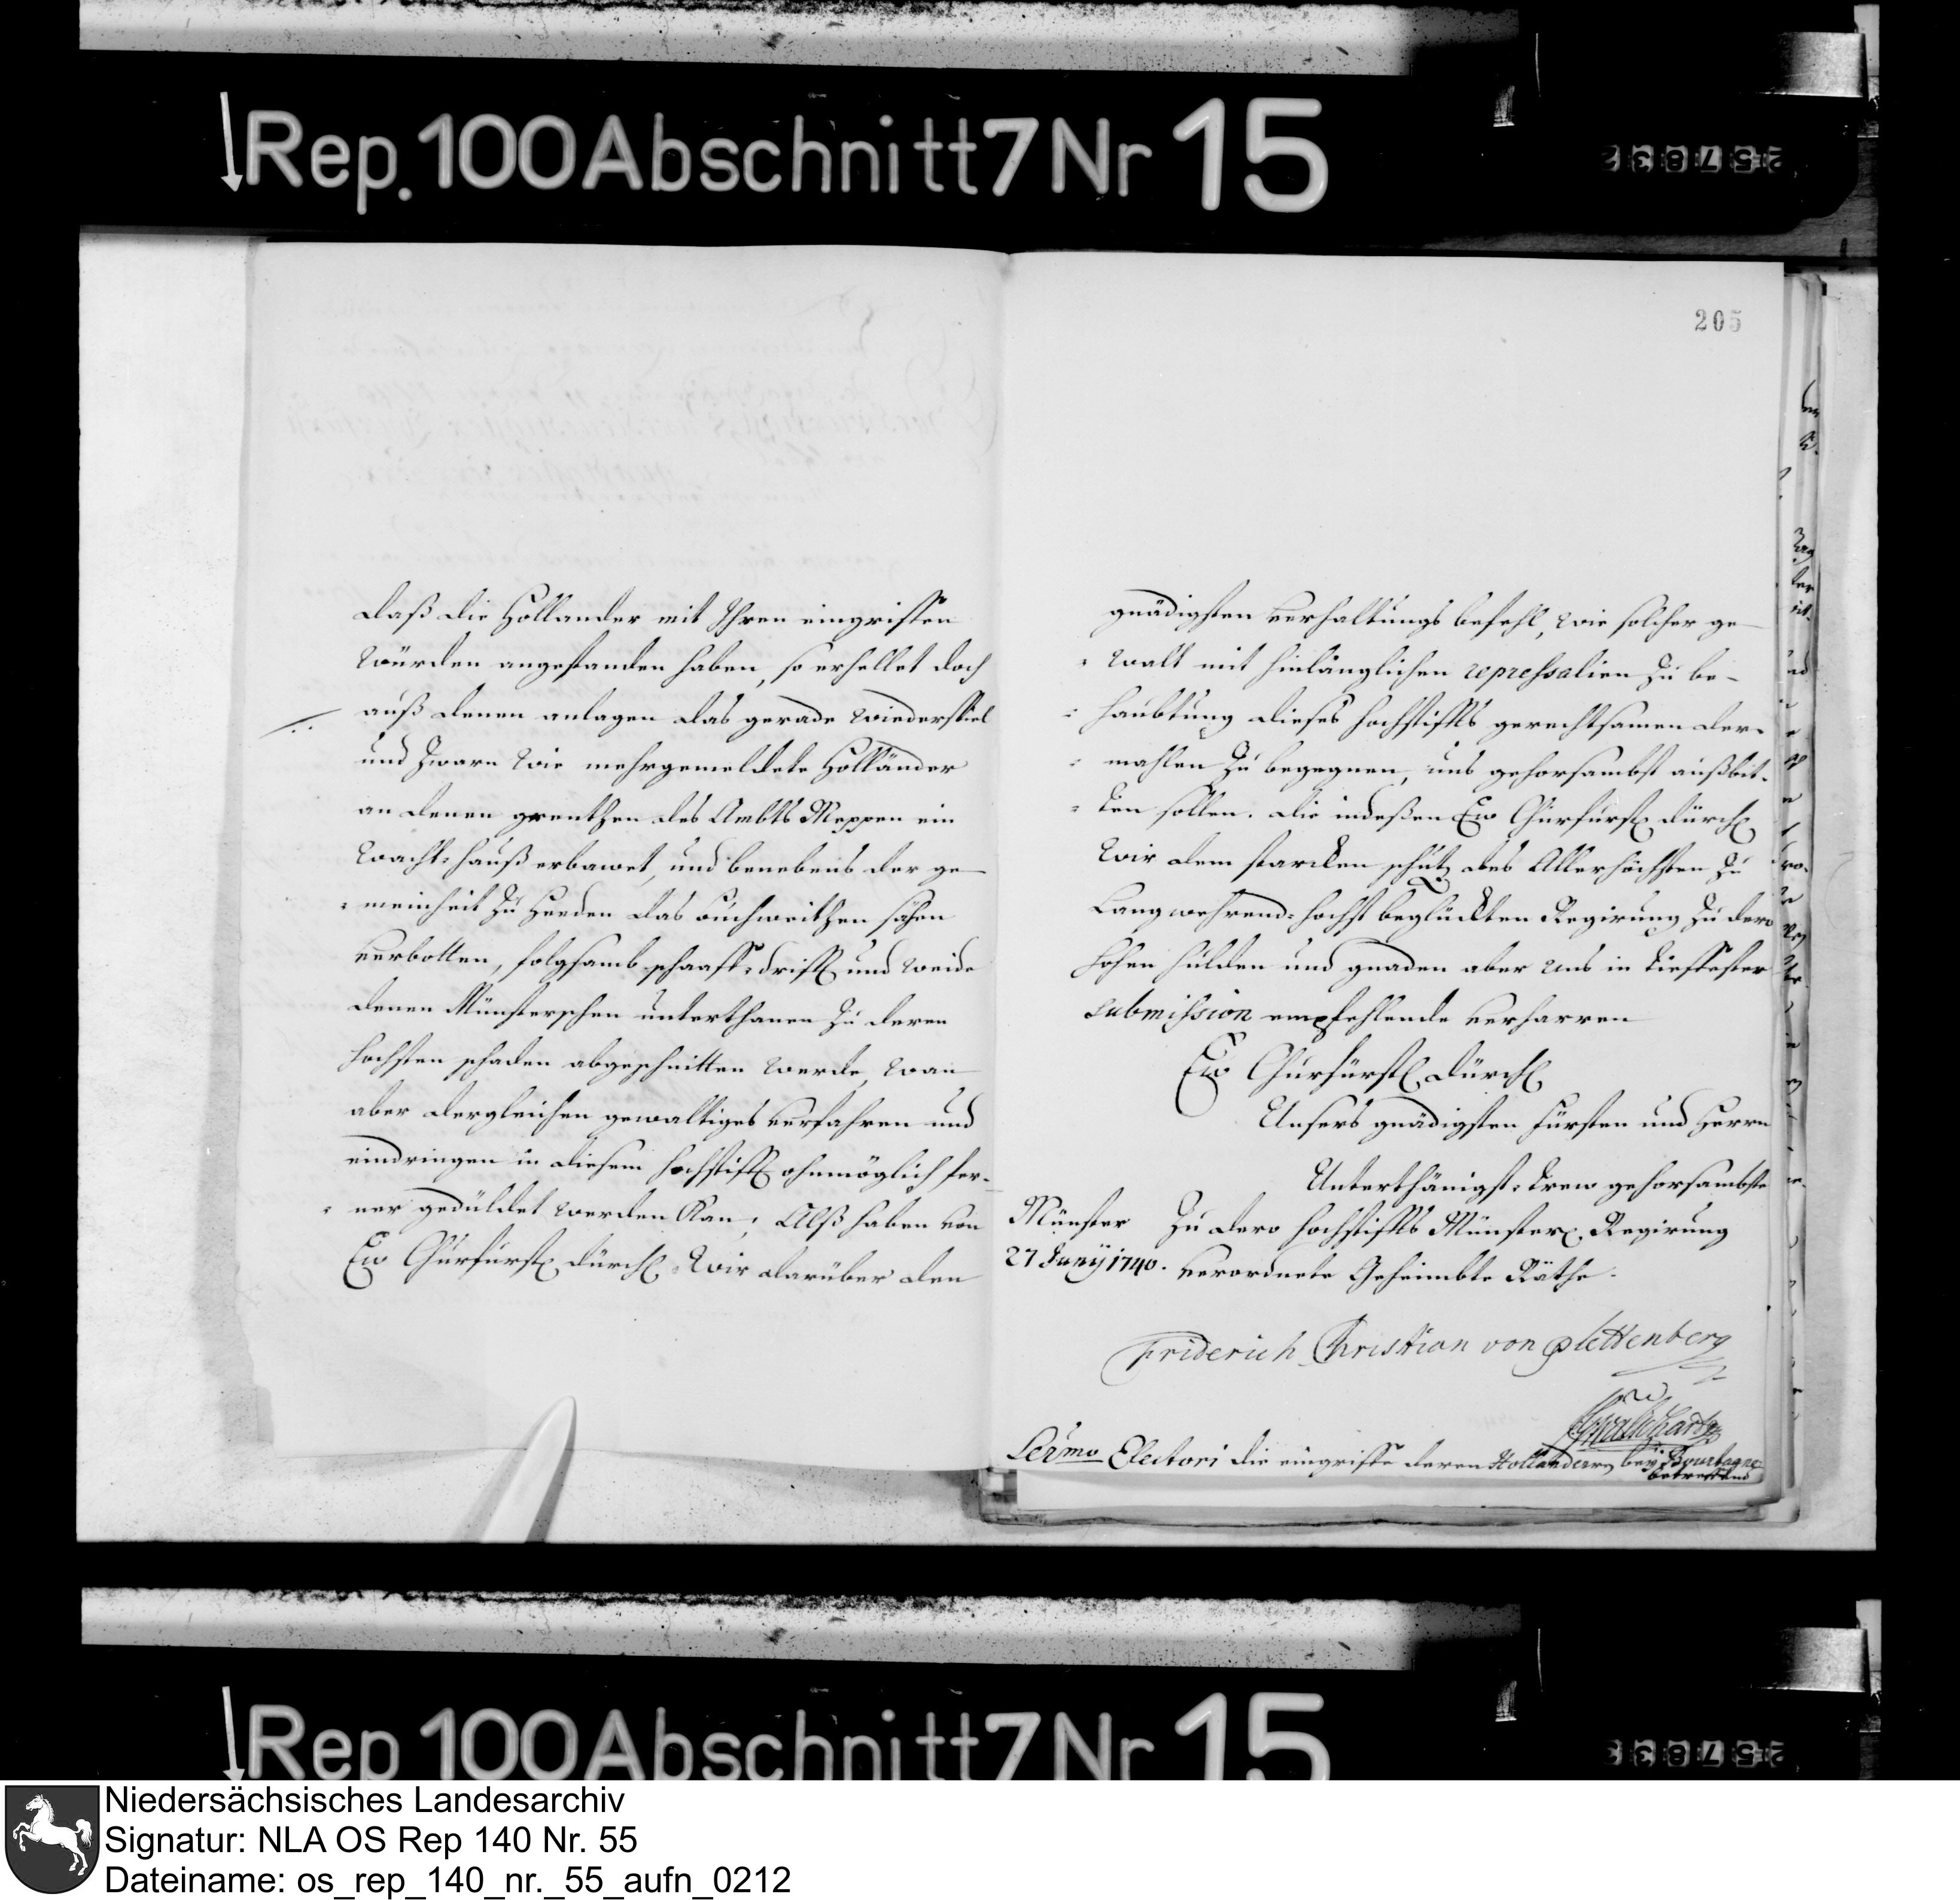 Rep. 100 Abschnitt 7 Nr 15
25783
205
daß die Hollander mit Ihren eingriffen
würden angestanden haben, so erhellet doch
auß denen anlagen das gerade wiederspiel
und zwarn wie mehrgemeldete Holländer
an denen grentzen des Ambts Meppen ein
wacht-hauß erbawet, und benebens der ge-
meinheit zu Heeden das buchweitzen sähen
verbotten, folgsamb schaaff-drifft und weide
denen Münsterschen unterthanen zu deren
höchsten schaden abgeschnitten werde, wan
aber dergleichen gewaltiges verfahren und
eindringen in diesem Hochstifft ohnmöglich fer-
ner geduldet werden Kan; Alß haben von
Ew Churfürstl dürchl wir darüber den
gnädigsten verhaltungs befehl, wie solcher ge-
walt mit hinlänglichen repressalien zu be-
haubtung dieses hochstiffts gerechtsamen der-
mahlen zu begegnen, uns gehorsambst außbit-
ten sollen. die indeßen Ew Churfürstl dürchl
wir dem starcken schutz des Allerhöchsten zu
Langwehrend-höchst beglückten Regirung zu dero
Hohen hulden und gnaden aber uns in tieffester
submission empfehlende verharren
Ew Churfürstl dürchl
Unsers gnädigsten Fürsten und Herrn
Unterthänigst-trew gehorsambste
Münster Zu dero hochstiffts Münster Regirung
27 Junÿ 1740. verordnete Geheimbte Räthe.
Friderich Christian von Plettenberg
Sermo Electori die eingriffe deren Hollandern beÿ Bourtagne
betreffend
Rep 100 Abschnitt 7 Nr 15
25783
Niedersächsisches Landesarchiv
Signatur: NLA OS Rep 140 Nr. 55
Dateiname: os_rep_140_nr._55_aufn_0212